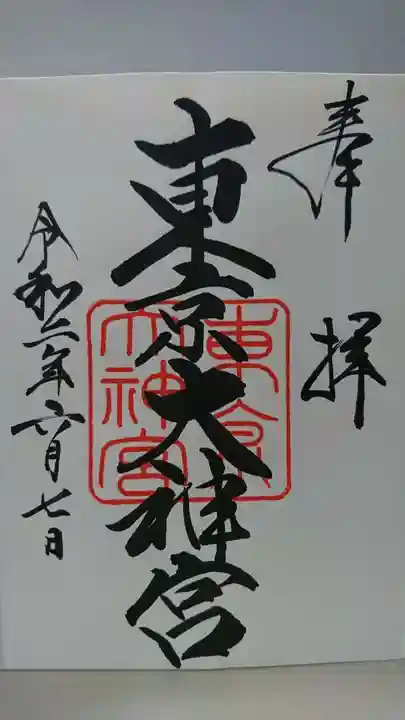 奉拝
東京大神宮
東京大神宮
令和二年六月七日